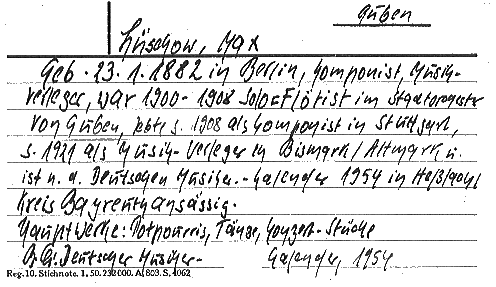 Guben
Lüschow, Max
Geb. 23.1.1882 in Berlin, Komponist, Musik-
verleger, war 1900-1908 Solo=Flötist im Stadtorchester
von Guben, lebte s. 1908 als Komponist in Stuttgart,
s. 1921 als Musik-Verleger in Bismark/Altmark u.
ist n. d. Deutschen Musiker-Kalender 1954 in
Kreis Bayreuth ansässig.
Hauptwerke: Potpourris, Tänze, Konzert-Stücke
Deutscher Musiker- Kalender, 1954
Reg.10. Stichnote. 1. 50. 232000. A. 803. S. 4062